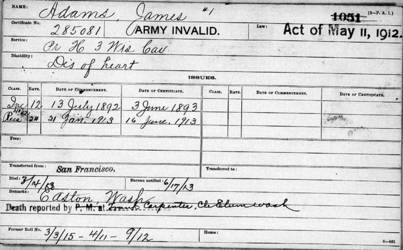 NAME: Adams, James #1 1051 (3-P. A. I.)
Certificate No. 285081 ARMY INVALID. Law: Act of May 11, 1912.
Service: Co H. 3 Wis Cav
Disability: Dis of heart
ISSUES.
CLASS. RATE. DATE OF COMMENCEMENT. DATE OF CERTIFICATE. CLASS. RATE. DATE OF COMMENCEMENT. DATE OF CERTIFICATE.
12 13 July 1892 3 June 1893
21 Jan. 1913 16 June, 1913
Fees:
Transferred from San Francisco. Transferred to
Died 2/14/13 Bureau notified 6/17/13
Remarks: Easton, Wash
Death reported by P. M. at Carpenter, Cle Elum wash
Former Roll No. 3/3/15 - 4/11 - 9/12 Home: